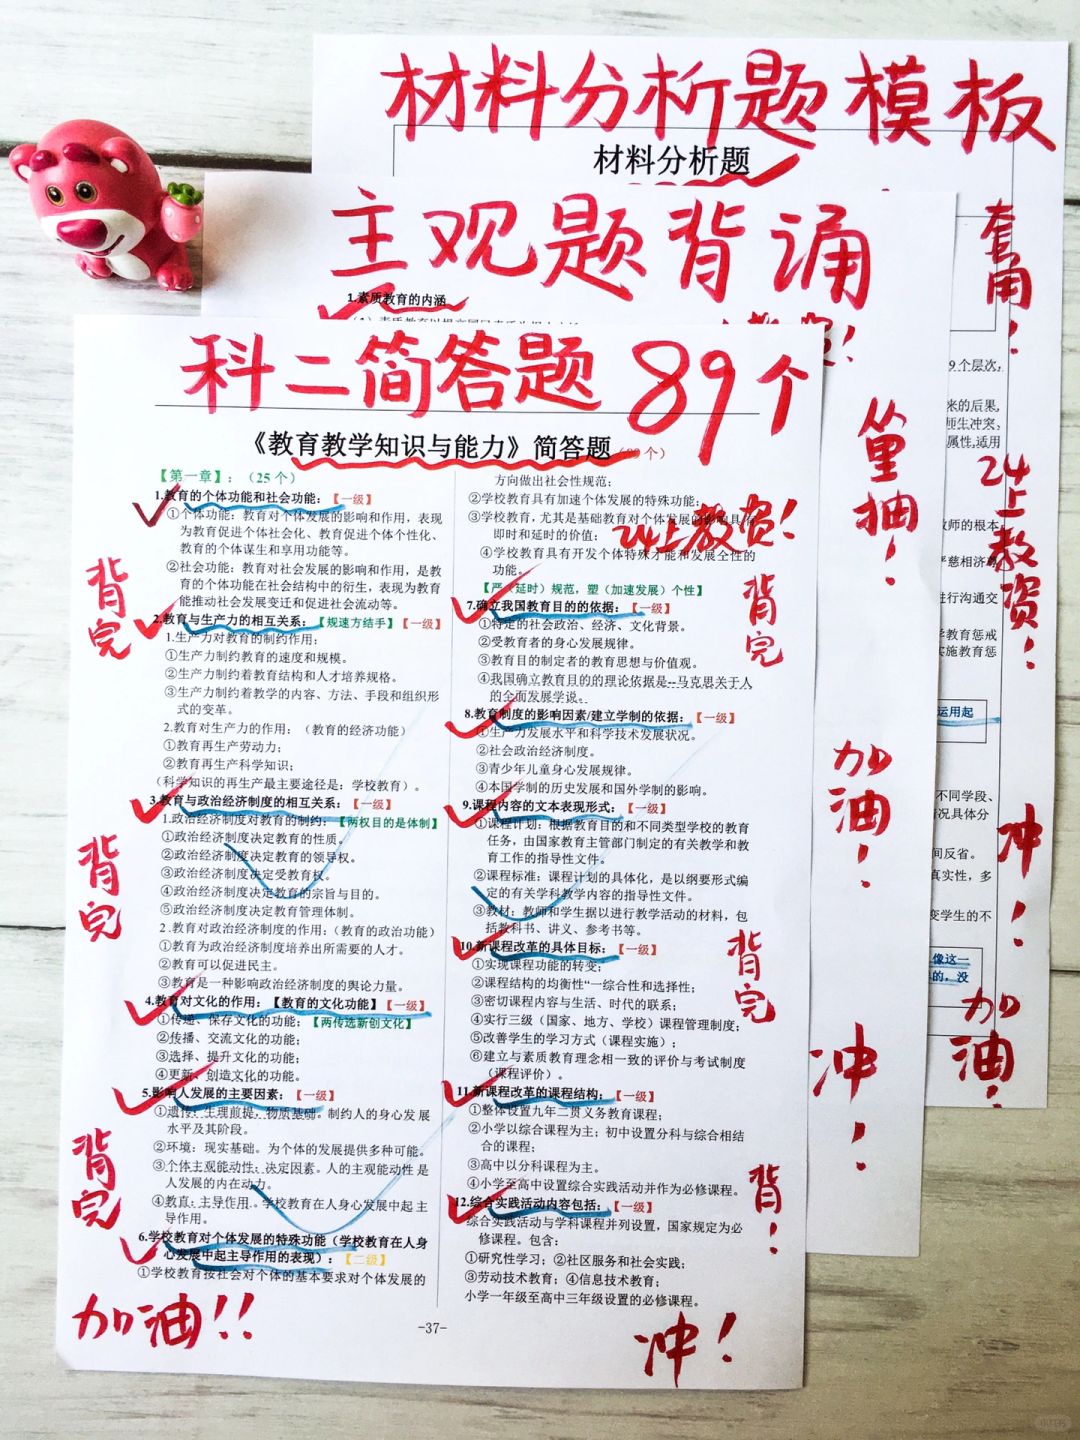 材料分析题模板
材料分析题
套用！
主观题背诵
1.素质教育的内涵
科二简答题89个
《教育教学知识与能力》简答题
【第一章】：（25 个）
1.教育的个体功能和社会功能：【一级】
①个体功能：教育对个体发展的影响和作用，表现
为教育促进个体社会化、教育促进个体个性化、
教育的个体谋生和享用功能等。
②社会功能：教育对社会发展的影响和作用，是教
育的个体功能在社会结构中的衍生，表现为教育
能推动社会发展变迁和促进社会流动等。
2.教育与生产力的相互关系：【规速方结手】【一级】
1.生产力对教育的制约作用；
①生产力制约教育的速度和规模。
②生产力制约着教育结构和人才培养规格。
③生产力制约着教学的内容、方法、手段和组织形
式的变革。
2.教育对生产力的作用；（教育的经济功能）
①教育再生产劳动力；
②教育再生产科学知识；
(科学知识的再生产最主要途径是：学校教育）。
3.教育与政治经济制度的相互关系：【一级】
1.政治经济制度对教育的制约：【两权目的是体制】
①政治经济制度决定教育的性质。
②政治经济制度决定教育的领导权。
③政治经济制度决定受教育权。
④政治经济制度决定教育的宗旨与目的。
⑤政治经济制度决定教育管理体制。
2.教育对政治经济制度的作用：（教育的政治功能）
①教育为政治经济制度培养出所需要的人才。
②教育可以促进民主。
③教育是一种影响政治经济制度的舆论力量。
4.教育对文化的作用：【教育的文化功能】【一级】
①传递、保存文化的功能；【两传选新创文化】
②传播、交流文化的功能；
③选择、提升文化的功能；
④更新、创造文化的功能。
5.影响人发展的主要因素：【一级】
①遗传：生理前提，物质基础。制约人的身心发展
水平及其阶段。
②环境：现实基础。为个体的发展提供多种可能。
③个体主观能动性：决定因素。人的主观能动性是
人发展的内在动力。
④教育：主导作用。学校教育在人身心发展中起主
导作用。
6.学校教育对个体发展的特殊功能（学校教育在人身
心发展中起主导作用的表现）：【二级】
①学校教育按社会对个体的基本要求对个体发展的
方向做出社会性规范；
②学校教育具有加速个体发展的特殊功能；
③学校教育，尤其是基础教育对个体发展的影响具有
即时和延时的价值；
④学校教育具有开发个体特殊才能和发展个性的
功能。
【严（延时）规范，塑（加速发展）个性】
7.确立我国教育目的的依据：【一级】
①特定的社会政治、经济、文化背景。
②受教育者的身心发展规律。
③教育目的制定者的教育思想与价值观。
④我国确立教育目的的理论依据是--马克思关于人
的全面发展学说。
8.教育制度的影响因素/建立学制的依据：【一级】
①生产力发展水平和科学技术发展状况。
②社会政治经济制度。
③青少年儿童身心发展规律。
④本国学制的历史发展和国外学制的影响。
9.课程内容的文本表现形式：【一级】
①课程计划：根据教育目的和不同类型学校的教育
任务，由国家教育主管部门制定的有关教学和教
育工作的指导性文件。
②课程标准：课程计划的具体化，是以纲要形式编
定的有关学科教学内容的指导性文件。
③教材：教师和学生据以进行教学活动的材料，包
括教科书、讲义、参考书等。
10.新课程改革的具体目标：【一级】
①实现课程功能的转变；
②课程结构的均衡性“一综合性和选择性；
③密切课程内容与生活、时代的联系；
④实行三级（国家、地方、学校）课程管理制度；
⑤改善学生的学习方式（课程实施）；
⑥建立与素质教育理念相一致的评价与考试制度
（课程评价）。
11.新课程改革的课程结构：【一级】
①整体设置九年二贯义务教育课程；
②小学以综合课程为主；初中设置分科与综合相结
合的课程；
③高中以分科课程为主。
④小学至高中设置综合实践活动并作为必修课程。
12.综合实践活动内容包括：【一级】
综合实践活动与学科课程并列设置，国家规定为必
修课程。包含：
①研究性学习；②社区服务和社会实践；
③劳动技术教育；④信息技术教育；
小学一年级至高中三年级设置的必修课程。
-37-
24上教资！
背完
背完
背完
背完
背完
背！
加油！！
冲！
加油！
冲！
24上教资！
冲！
加油！
9个层次，
来的后果，
师生冲突，
属性，适用
教师的根本
严慈相济
进行沟通交
学教育惩戒
实施教育惩
运用起
不同学段、
情况具体分
间反省。
真实性，多
变学生的不
像这一
的，没